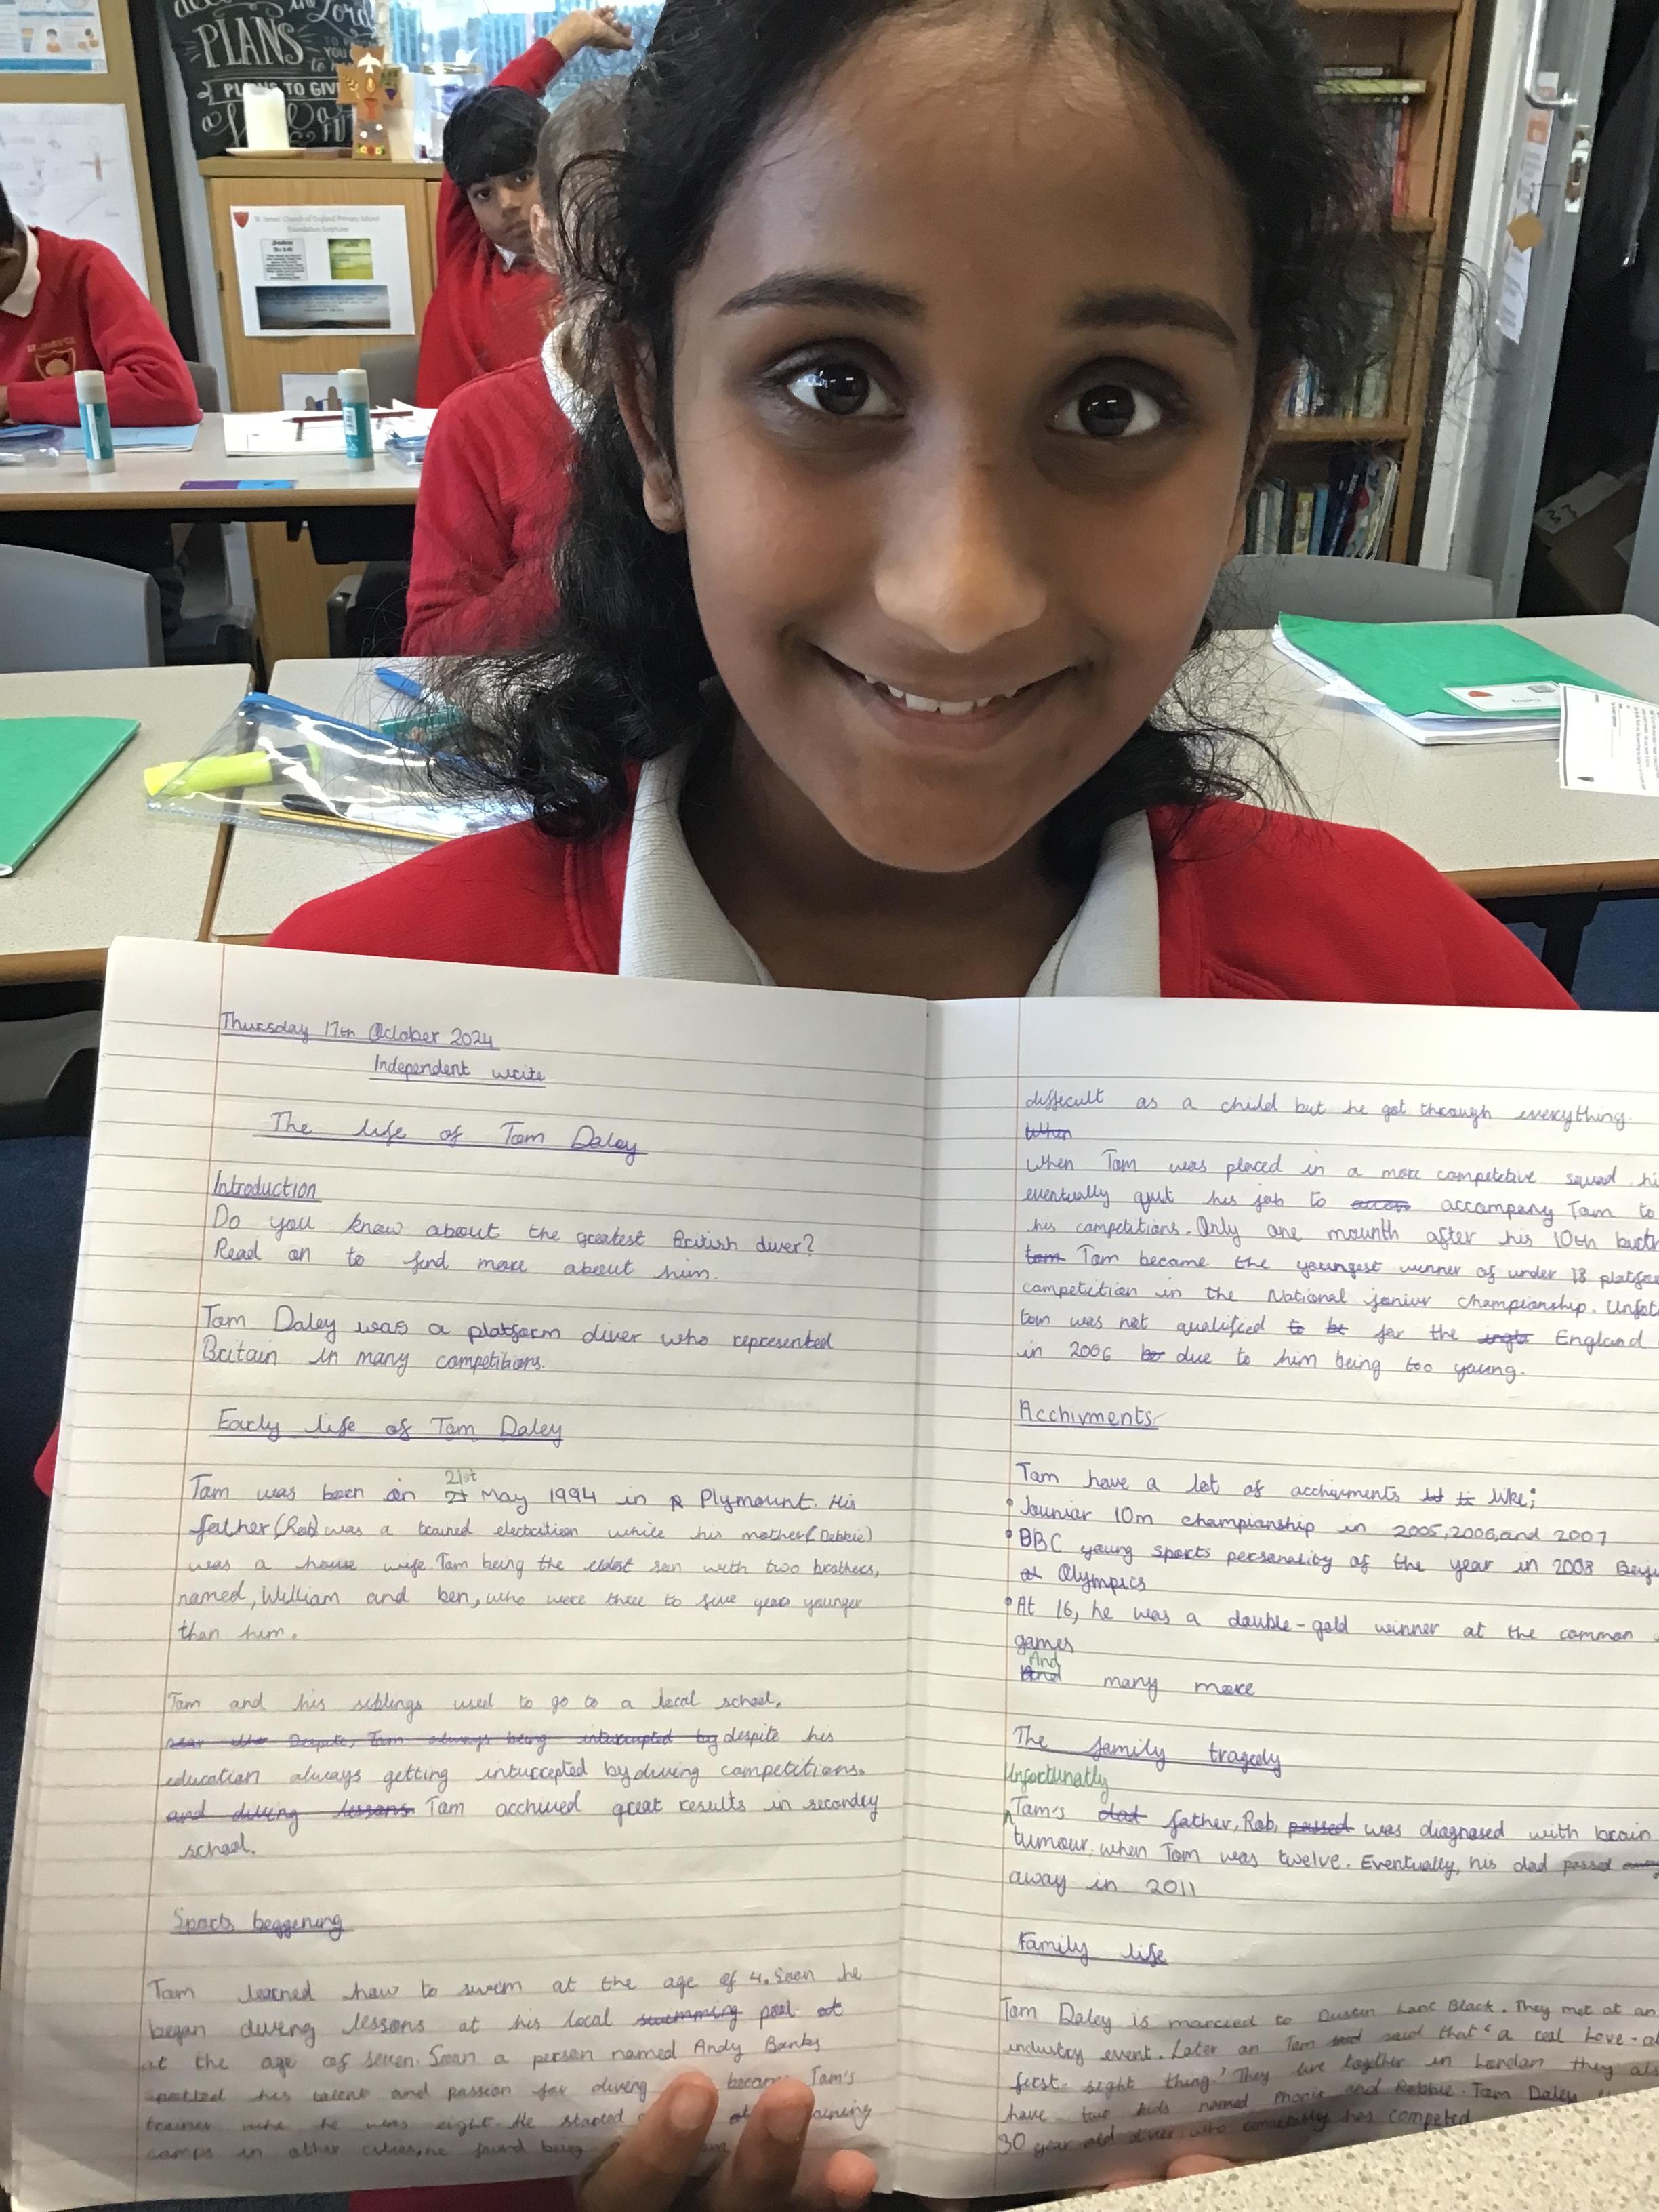 in Lord
PLANS
TO GIVE
St James' Church of England Primary School
Foundation Scripture
33
Thursday 17th October 2024
Independent write
The life of Tom Daley
Introduction
Do you know about the greatest British diver?
Read on to find more about him.
Tom Daley was a platform diver who represented
Britain in many competitions.
Early life of Tom Daley
21st
Tom was born on 21 May 1994 in p Plymount. His
father (Rob) was a trained electrition while his mother (Debbie)
was a house wife. Tom being the eldest son with two brothers,
named, William and ben, who were three to five years younger
than him.
Tom and his siblings used to go to a local school,
near the Despite, Tom always being interrupted by despite his
education always getting inturrepted by diving competitions.
and diving lessons Tom acchived great results in secondry
school.
Sports beggening
Tom learned how to swim at the age of 4. Soon he
began diving lessons at his local swimming pool at
at the age of seven. Soon a person named Andy Banks
spotted his talent and passion for diving became Tom's
trainer whe he was eight. He started
camps in other cities, he found being
difficult as a child but he got through everything.
When
when Tom was placed in a more competetive squad, his
eventually quit his job to accompany Tom to
his competitions. Only one mounth after his 10th birth
tom Tom became the youngest winner of under 18 platform
competition in the National joniur championship. Unfot
tom was not qualifced to be for the England
in 2006 be due to him being too young.
Acchivments
Tom have a lot of acchivments like;
Jouniar 10m championship in 2005, 2006, and 2007
BBC young sports personality of the year in 2008 Beiji
at Olympics
At 16, he was a double-gold winner at the common
games
And
And many more
The family tragedy
Unfortunatly
Tom's dad father, Rob, passed was diagnosed with brain
tumour, when Tom was twelve. Eventually, his dad passed away
away in 2011
Family life
Tom Daley is married to Dustin Lanc Black. They met at an
industry event. Later on Tom said said that 'a real Love-at
first-sight thing.' They live together in London they als
have two kids named Phonix and Robbie. Tom Daley
30 year old diver, who has competed